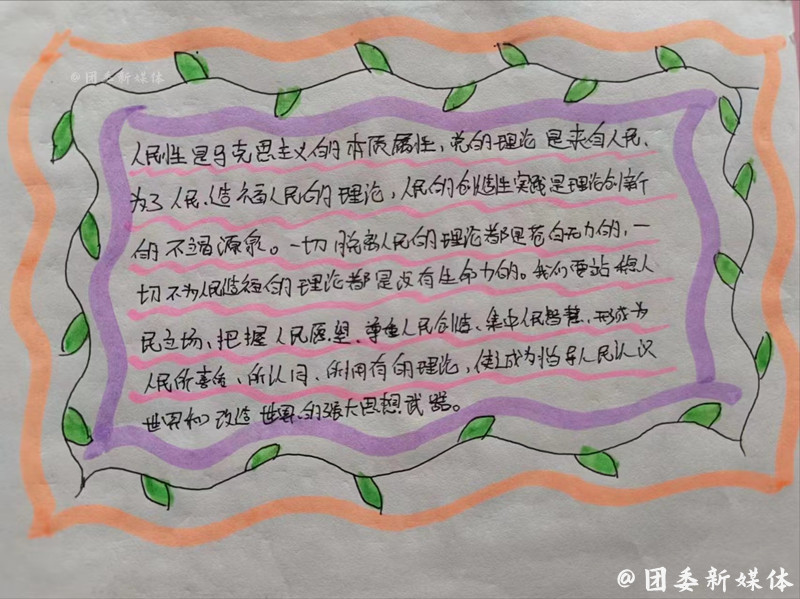 @团委新媒体
人民性是马克思主义的本质属性，党的理论是来自人民、
为了人民、造福人民的理论，人民的创造性实践是理论创新
的不竭源泉。一切脱离人民的理论都是苍白无力的，一
切不为人民造福的理论都是没有生命力的。我们要站稳人
民立场、把握人民愿望、尊重人民创造、集中人民智慧，形成为
人民所喜爱、所认同、所拥有的理论，使之成为指导人民认识
世界和改造世界的强大思想武器。
@团委新媒体